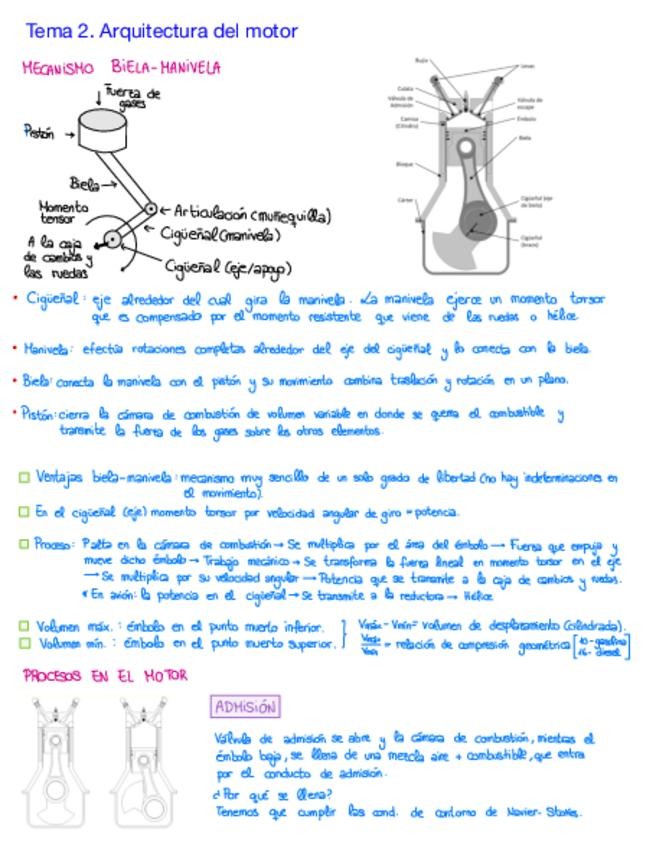 Tema 2. Arquitectura del motor
MECANISMO BIELA-MANIVELA
Fuerza de
gases
Pistón
Biela
Momento
tensor
A la caja
de cambios y
las ruedas
Articulación (muñequilla)
Cigüeñal (manivela)
Cigüeñal (eje/apoyo)
Bujía
Levas
Culata
Válvula de
Admisión
Válvula de
escape
Camisa
(Cilindro)
Émbolo
Biela
Bloque
Cárter
Cigüeñal (eje
de biela)
Cigüeñal
(brazo)
• Cigüeñal: eje alrededor del cual gira la manivela. La manivela ejerce un momento torsor
que es compensado por el momento resistente que viene de las ruedas o hélice.
• Manivela: efectúa rotaciones completas alrededor del eje del cigüeñal y lo conecta con la biela.
• Biela: conecta la manivela con el pistón y su movimiento combina traslación y rotación en un plano.
• Pistón: cierra la cámara de combustión de volumen variable en donde se quema el combustible y
transmite la fuerza de los gases sobre los otros elementos.
Ventajas biela-manivela: mecanismo muy sencillo de un solo grado de libertad (no hay indeterminaciones en
el movimiento).
En el cigüeñal (eje) momento torsor por velocidad angular de giro = potencia.
Proceso: Palta en la cámara de combustión → Se multiplica por el área del émbolo → Fuerza que empuja y
mueve dicho émbolo → Trabajo mecánico → Se transforma la fuerza lineal en momento torsor en el eje
→ Se multiplica por su velocidad angular → Potencia que se transmite a la caja de cambios y ruedas.
* En avión: la potencia en el cigüeñal → Se transmite a la reductora → Hélice
Volumen máx.: émbolo en el punto muerto inferior.
Volumen mín.: émbolo en el punto muerto superior.
Vmáx - Vmín = volumen de desplazamiento (cilindrada).
Vmáx/Vmín = relación de compresión geométrica [10-gasolina
16-diesel]
PROCESOS EN EL MOTOR
ADMISIÓN
Válvula de admisión se abre y la cámara de combustión, mientras el
émbolo baja, se llena de una mezcla aire + combustible, que entra
por el conducto de admisión.
¿Por qué se llena?
Tenemos que cumplir las cond. de contorno de Navier-Stokes.